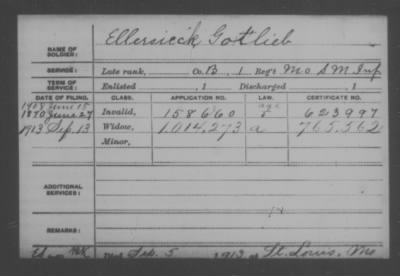 Ellersieck Gotlieb
NAME OF SOLDIER:
SERVICE: Late rank, Co. B, 1 Reg't Mo S M Inf
TERM OF SERVICE: Enlisted , 1 Discharged , 1
DATE OF FILING. CLASS. APPLICATION NO. LAW. CERTIFICATE NO.
1908 June 15 age
1870 June 27 Invalid, 158660 623997
1913 Sep. 13 Widow, 1,014,273 a 765,562
Minor,
ADDITIONAL SERVICES:
REMARKS:
Died Sep. 5 1913 at St. Louis, Mo